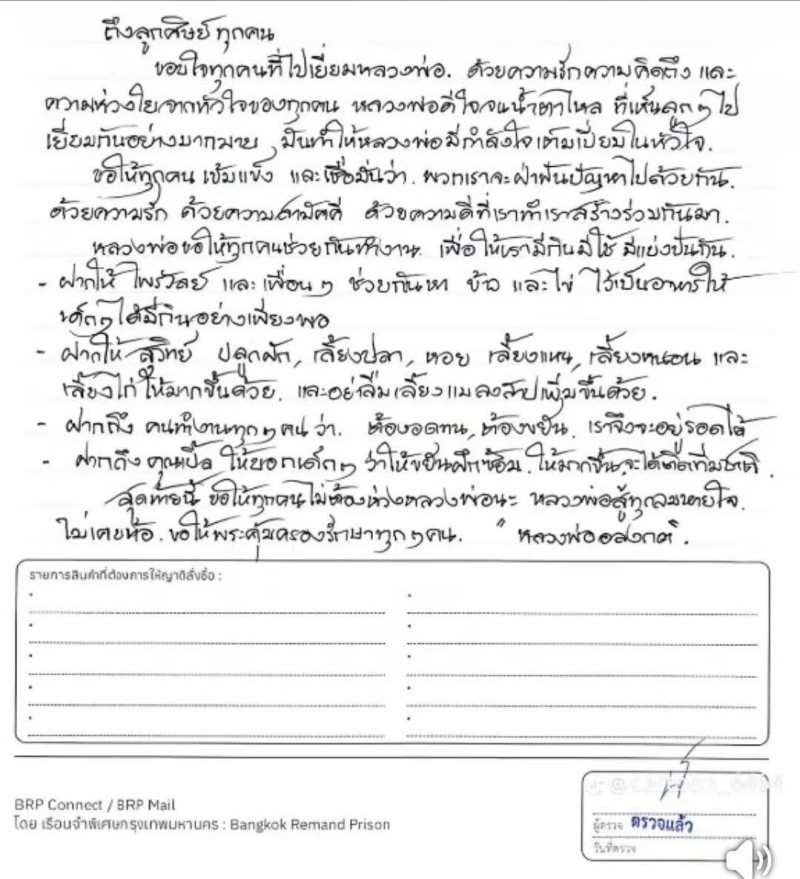 ถึงลูกศิษย์ทุกคน
ขอบใจทุกคนที่ไปเยี่ยมหลวงพ่อ. ด้วยความรักความคิดถึง และ
ความห่วงใยจากหัวใจของทุกคน หลวงพ่อดีใจจนน้ำตาไหล ที่เห็นลูกๆไป
เยี่ยมกันอย่างมากมาย มันทำให้หลวงพ่อมีกำลังใจเต็มเปี่ยมในหัวใจ.
ขอให้ทุกคน เข้มแข็ง และเชื่อมั่นว่า. พวกเราจะฝ่าฟันปัญหาไปด้วยกัน.
ด้วยความรัก ด้วยความสามัคคี ด้วยความดีที่เราทำเราสร้างร่วมกันมา.
หลวงพ่อขอให้ทุกคนช่วยกันทำงาน. เพื่อให้เรามีกินมีใช้ มีแบ่งปันกัน.
- ฝากให้ ไพรวัลย์ และเพื่อนๆ ช่วยกันหา ข้าว และไข่ ไว้เป็นอาหารให้
เด็กๆได้มีกินอย่างเพียงพอ
- ฝากให้ สุวิทย์ ปลูกผัก, เลี้ยงปลา, หอย เลี้ยงแหน, เลี้ยงหนอน และ
เลี้ยงไก่ ให้มากขึ้นด้วย. และอย่าลืมเลี้ยงแมลงสาปเพิ่มขึ้นด้วย.
- ฝากถึง คนทำงานทุกๆคน ว่า. ต้องอดทน, ต้องขยัน. เราจึงจะอยู่รอดได้
- ฝากถึง คุณเปิ้ล ให้บอกเด็กๆ ว่าให้ขยันฝึกซ้อม. ให้มากขึ้น จะได้ติดทีมชาติ.
สุดท้ายนี้ ขอให้ทุกคนไม่ต้องห่วงหลวงพ่อนะ หลวงพ่อสู้ทุกลมหายใจ.
ไม่เคยท้อ. ขอให้พระคุ้มครองรักษาทุกๆคน. " หลวงพ่ออลงกต".
รายการสินค้าที่ต้องการให้ญาติสั่งซื้อ :
BRP Connect / BRP Mail
โดย เรือนจำพิเศษกรุงเทพมหานคร : Bangkok Remand Prison
ผู้ตรวจ ตรวจแล้ว
วันที่ตรวจ